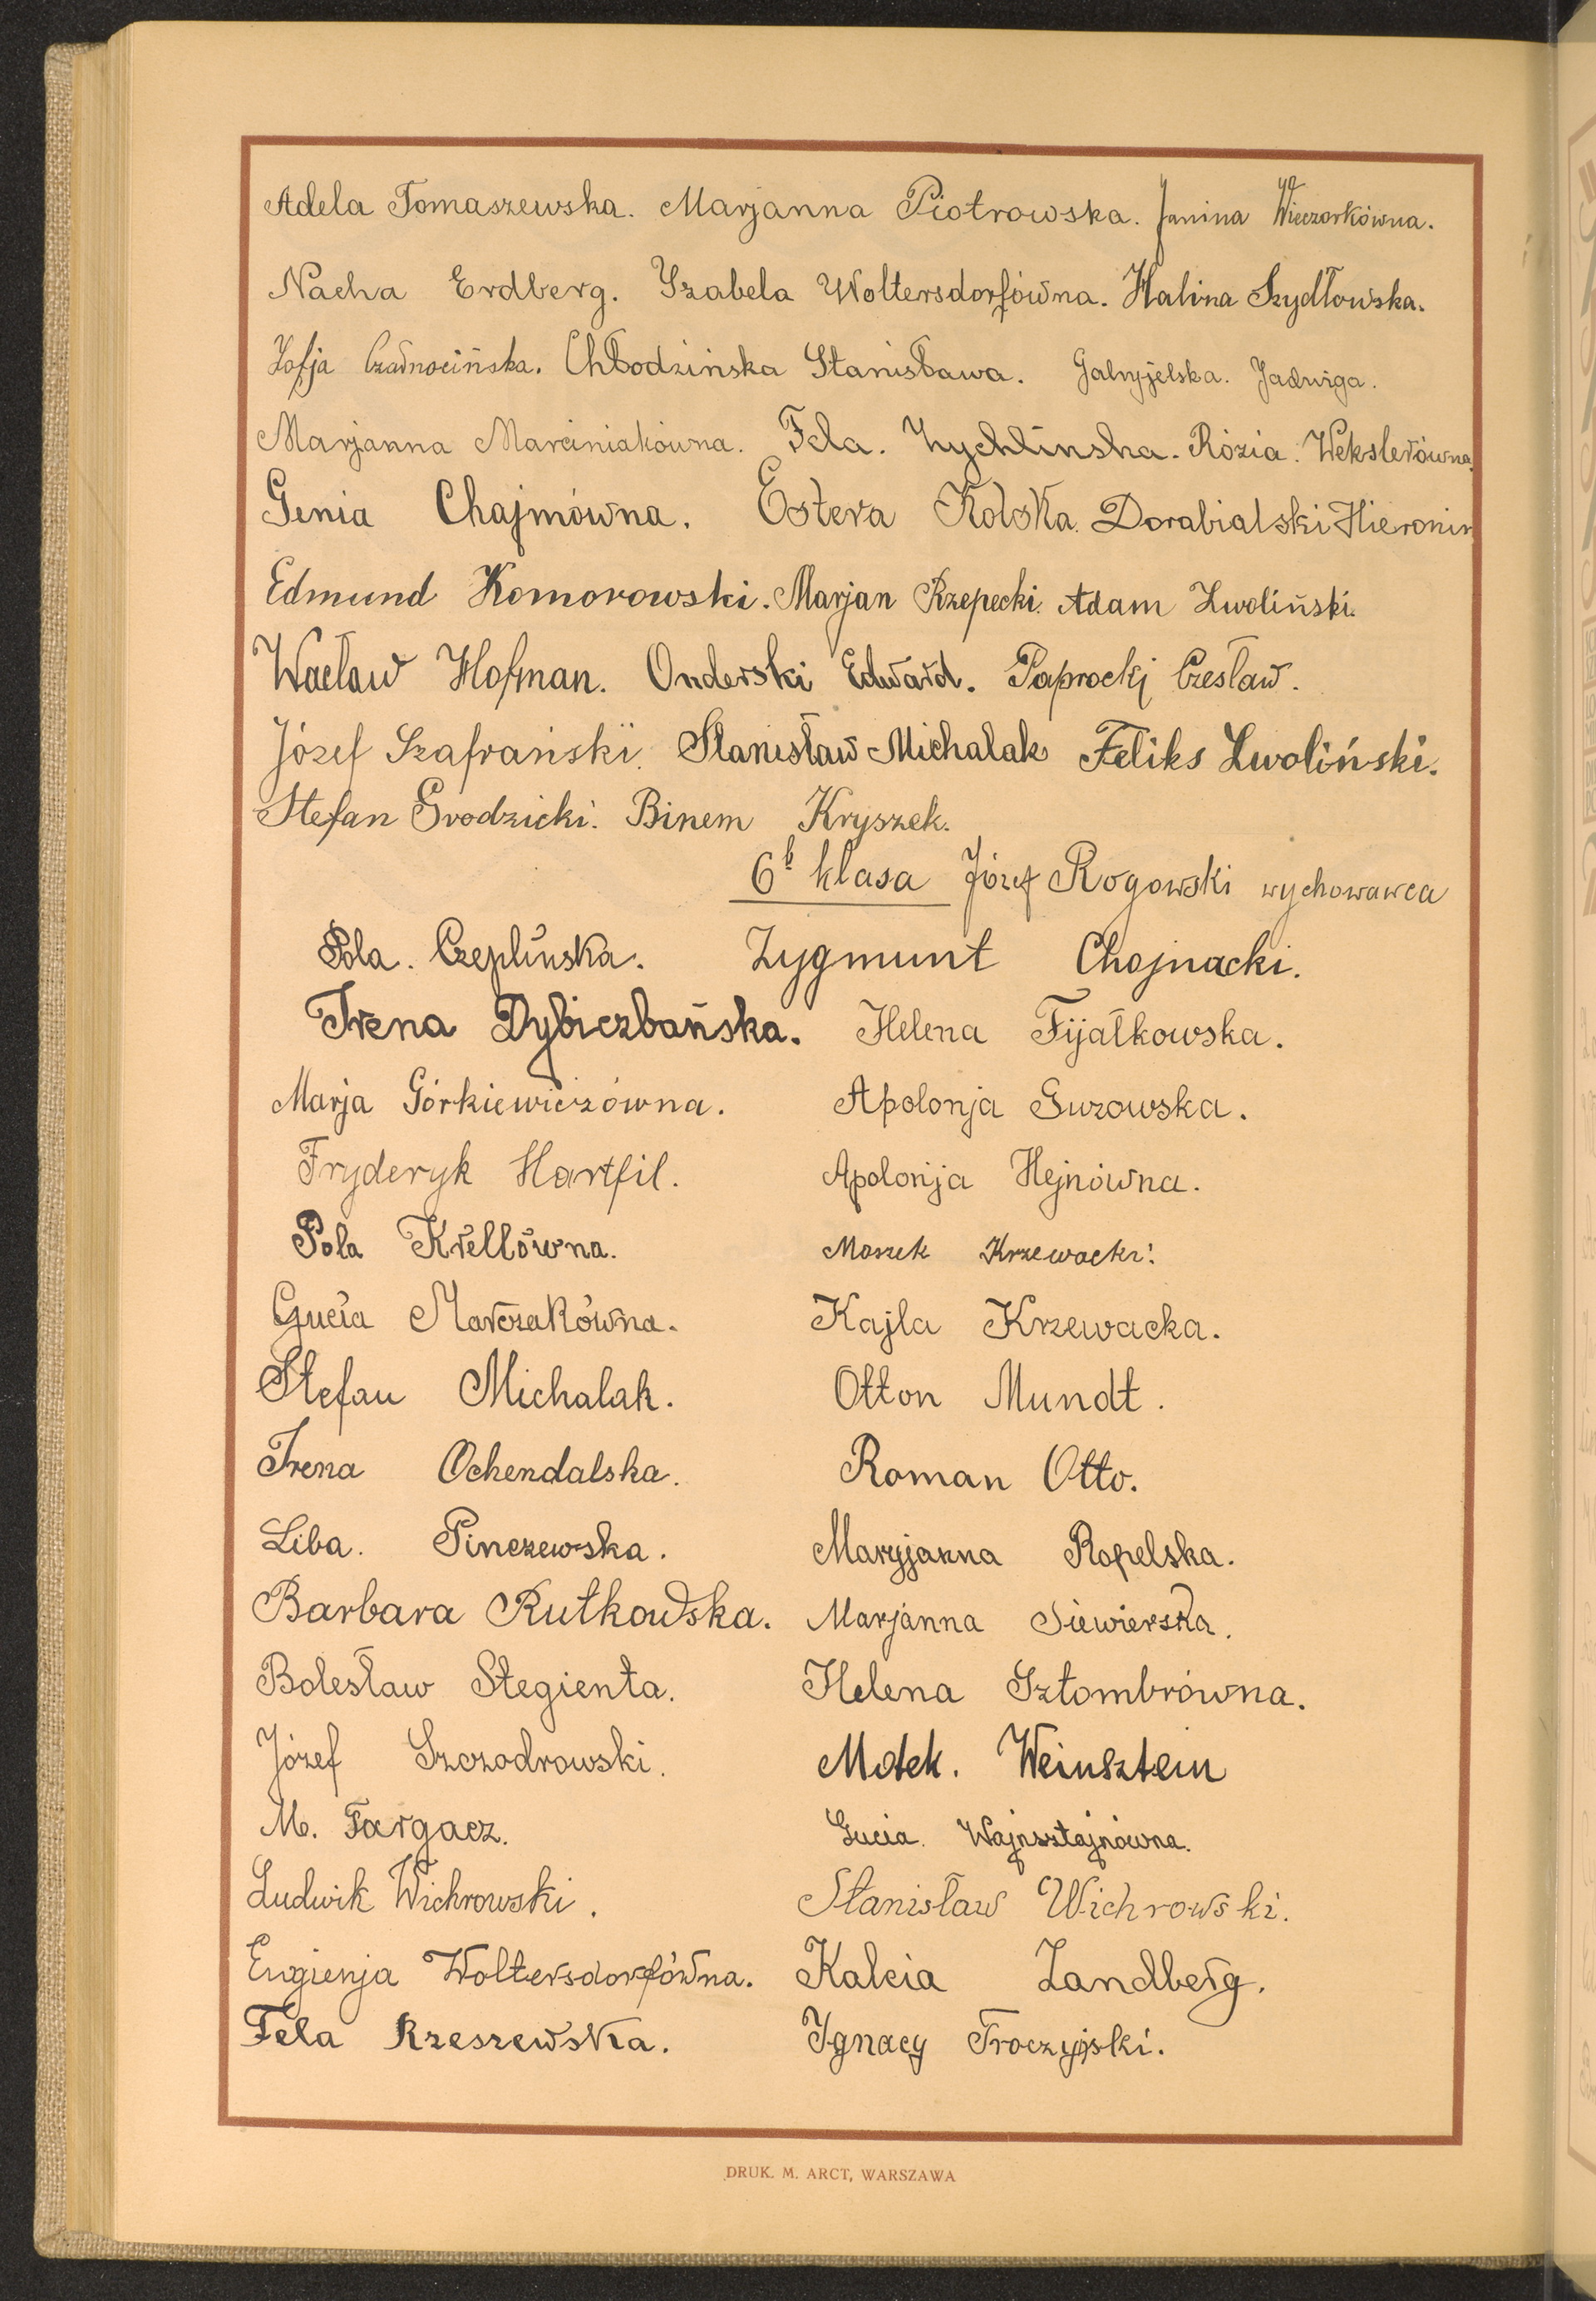 Adela Tomaszewska. Marjanna Piotrowska. Janina Wieczorkówna.
Nacha Erdberg. Izabela Woltersdorfówna. Halina Szydłowska.
Zofja Czarnocińska. Chłodzińska Stanisława. Gabryjelska. Jadwiga.
Marjanna Marciniakówna. Fela. Zychlińska. Rózia. Wekslerówna.
Genia Chajmówna. Estera Kolska. Dorabialski Hieronim
Edmund Komorowski. Marjan Rzepecki. Adam Zwoliński.
Wacław Hofman. Onderski Edward. Paprocki Czesław.
Józef Szafrański. Stanisław Michalak Feliks Zwoliński.
Stefan Grodzicki. Binem Kryszek.
6b klasa Józef Rogowski wychowawca
Pola. Czeplińska. Zygmunt Chojnacki.
Irena Dybiczbańska. Helena Fijałkowska.
Marja Górkiewiczówna. Apolonja Guzowska.
Fryderyk Hartfil. Apolonja Hejnówna.
Pola Krellówna. Moszek Krzewacki.
Gucia Marczakówna. Kajla Krzewacka.
Stefan Michalak. Otton Mundt.
Irena Ochendalska. Roman Otto.
Liba. Pinczewska. Maryjanna Ropelska.
Barbara Rutkowska. Marjanna Siewierska.
Bolesław Stegienta. Helena Sztombrówna.
Józef Szczodrowski. Motek. Weinsztein
M. Targacz. Gucia. Wajnsztajnówna.
Ludwik Wichrowski. Stanisław Wichrowski.
Eugienja Woltersdorfówna. Kalcia Zandberg.
Fela Rzeszewska. Ignacy Troczyjski.
DRUK. M. ARCT, WARSZAWA